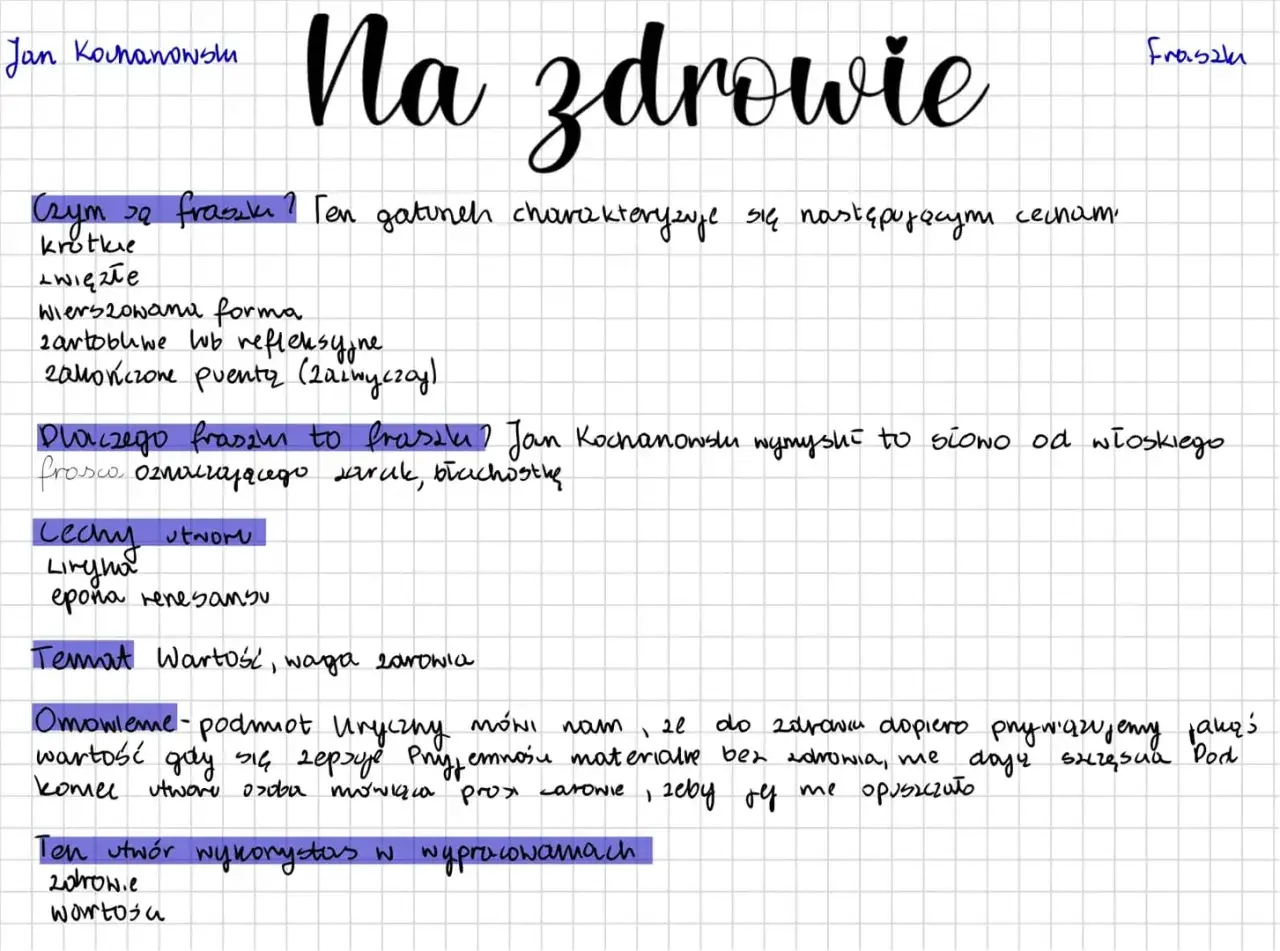 Jan Kochanowski
Na zdrowie
Fraszki
Czym są fraszki? Ten gatunek charakteryzuje się następującymi cechami
krótkie
zwięzłe
wierszowana forma
żartobliwe lub refleksyjne
zakończone puentą (zazwyczaj)
Dlaczego fraszki to fraszki? Jan Kochanowski wymyślił to słowo od włoskiego
frasca oznaczającego żarcik, błachostkę
Cechy utworu
Liryka
epoka renesansu
Temat Wartość, waga zdrowia
Omówienie - podmiot liryczny mówi nam, że do zdrowia dopiero przywiązujemy jakąś
wartość gdy się zepsuje Przyjemności materialne bez zdrowia, nie dają szczęścia Pod
koniec utworu osoba mówiąca prosi zdrowie, żeby jej nie opuszczało
Ten utwór wykorzystasz w wypracowaniach
zdrowie
wartości